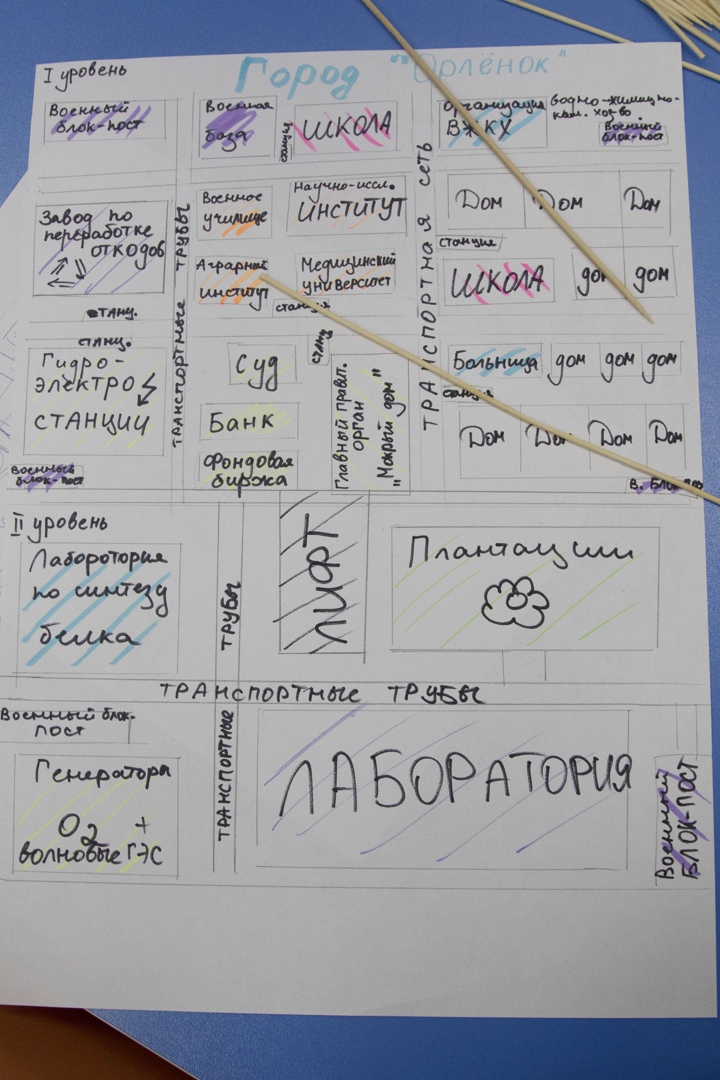 I уровень
Город "Орлёнок"
Военный
блок-пост
Военная
база
станция
ШКОЛА
Организация
ВЖКХ
водно-жилищно-
ком. хоз-во.
Военный
блок-пост
Завод по
переработке
отходов
СТАНЦ.
ТРАНСПОРТНЫЕ ТРУБЫ
Военное
училище
Научно-иссл.
ИНСТИТУТ
Аграрный
институт
Медицинский
университет
станция
ТРАНСПОРТНАЯ СЕТЬ
Дом Дом Дом
станция
ШКОЛА
дом дом
станц.
Гидро-
электро
станции
Военный
блок-пост
Суд
станц
Банк
Фондовая
биржа
Главный правит.
орган
"Мокрый дом"
Больница
дом дом дом
станция
Дом Дом Дом Дом
В. Блок-по
II уровень
Лаборотория
по синтезу
белка
ТРУБЫ
ЛИФТ
Плантации
ТРАНСПОРТНЫЕ ТРУБЫ
Военный блок-
пост
Генератора
O2 +
волновые ГЭС
ТРАНСПОРТНЫЕ
ЛАБОРАТОРИЯ
Военный
БЛОК-ПОСТ